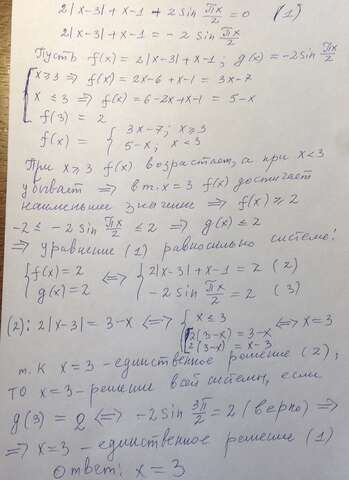 2|x-3| + x-1 + 2 sin πx/2 = 0 (1)
2|x-3| + x-1 = -2 sin πx/2
Пусть f(x) = 2|x-3| + x-1; g(x) = -2 sin πx/2
[ x ≥ 3 ⇒ f(x) = 2x-6 + x-1 = 3x-7
x ≤ 3 ⇒ f(x) = 6-2x+x-1 = 5-x
f(3) = 2
f(x) = { 3x-7; x ≥ 3
5-x; x < 3
При x ≥ 3 f(x) возрастает, а при x < 3
убывает ⇒ в т. x = 3 f(x) достигает
наименьшее значение ⇒ f(x) ≥ 2
-2 ≤ -2 sin πx/2 ≤ 2 ⇒ g(x) ≤ 2
⇒ уравнение (1) равносильно системе:
{ f(x) = 2 ⟺ { 2|x-3| + x-1 = 2 (2)
{ g(x) = 2 { -2 sin πx/2 = 2 (3)
(2): 2|x-3| = 3-x ⟺ { x ≤ 3
[ 2(3-x) = 3-x ⟺ x = 3
2(3-x) = x-3
т. к x = 3 - единственное решение (2),
то x = 3 - решение всей системы, если
g(3) = 2 ⟺ -2 sin 3π/2 = 2 (верно) ⇒
⇒ x = 3 - единственное решение (1)
Ответ: x = 3